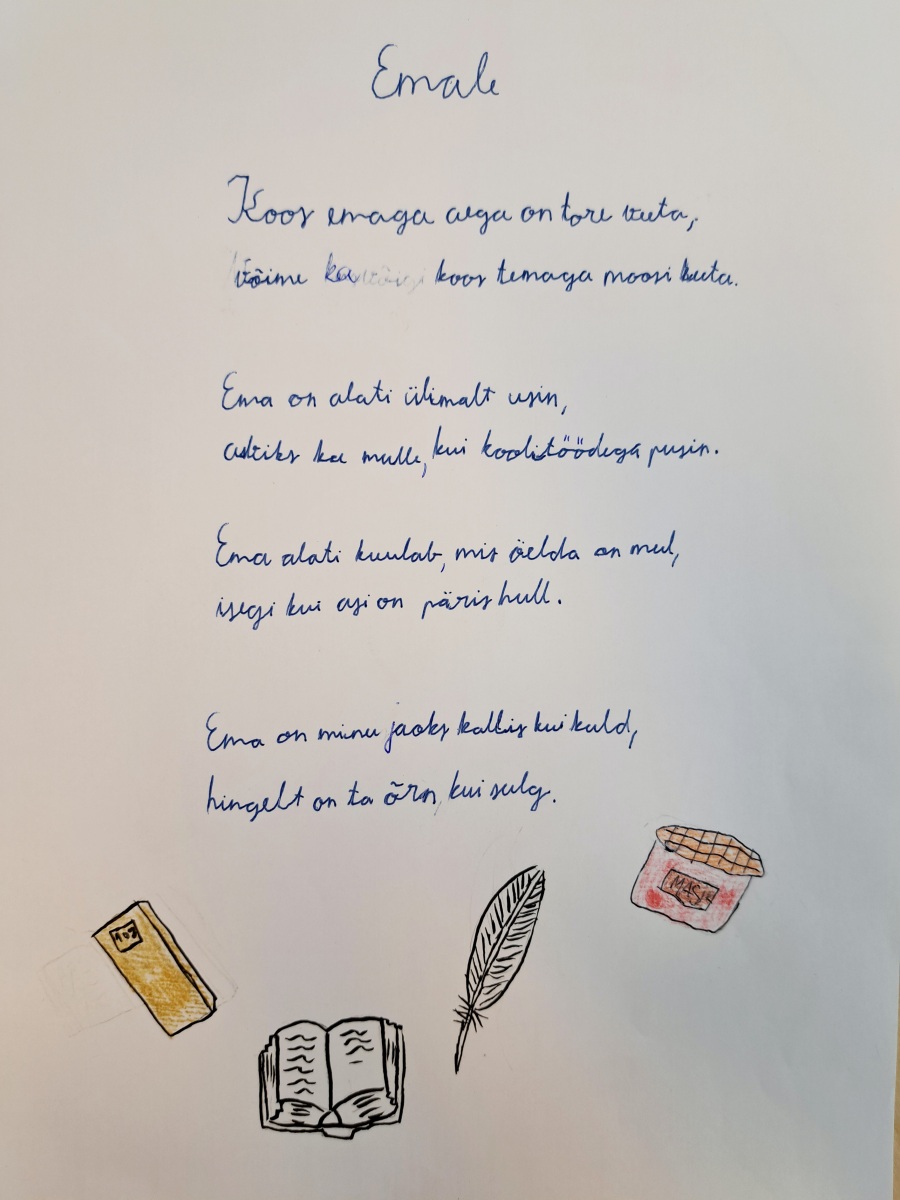 Emale
Koos emaga aega on tore veeta,
võime ka koos temaga moosi keeta.
Ema on alati ülimalt usin,
abiks ka mulle, kui koolitöödega pusin.
Ema alati kuulab, mis öelda on mul,
isegi kui asi on päris hull.
Ema on minu jaoks kallis kui kuld,
hingelt on ta õrn, kui sulg.